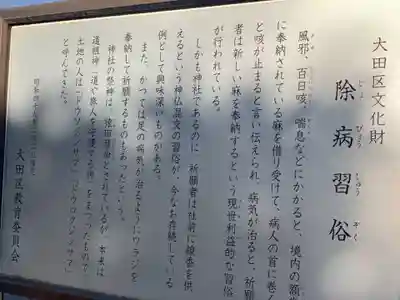 大田区文化財
除病習俗
じょ びょう しゅう ぞく
風邪、百日咳、喘息などにかかると、境内の額
に奉納されている麻を借り受けて、病人の首に巻く
と咳が止まると言い伝えられ、病気が治ると、祈願
者は新しい麻を奉納するという現世利益的な習俗
が行われている。
しかも神社であるのに、祈願者は社前に線香を供
えるという神仏混交の習俗が、今なお存続している
例として興味深いものがある。
また、かつては足の病気が治るようにワラジを
奉納して祈願するものもあったという。
神社の祭神は、猿田彦命とされているが、本来は
道祖神(道や旅人を守護する神)をまつったもので
土地の人は「ドウロクジンサマ」
と呼んできた。
大田区教育委員会